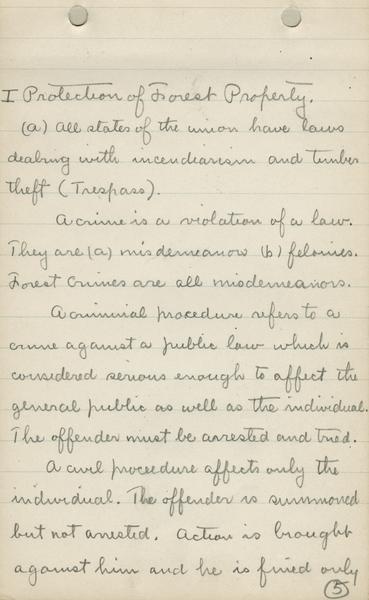 I Protection of Forest Property.
(a) All states of the union have laws
dealing with incendiarism and timber
theft (Trespass).
A crime is a violation of a law.
They are (a) misdemeanow (b) felonies.
Forest Crimes are all misdemeanors.
A criminal procedure refers to a
crime against a public law which is
considered serious enough to affect the
general public as well as the individual.
The offender must be arrested and tried.
A civil procedure affects only the
individual. The offender is summoned
but not arrested. Action is brought
against him and he is fined only
5